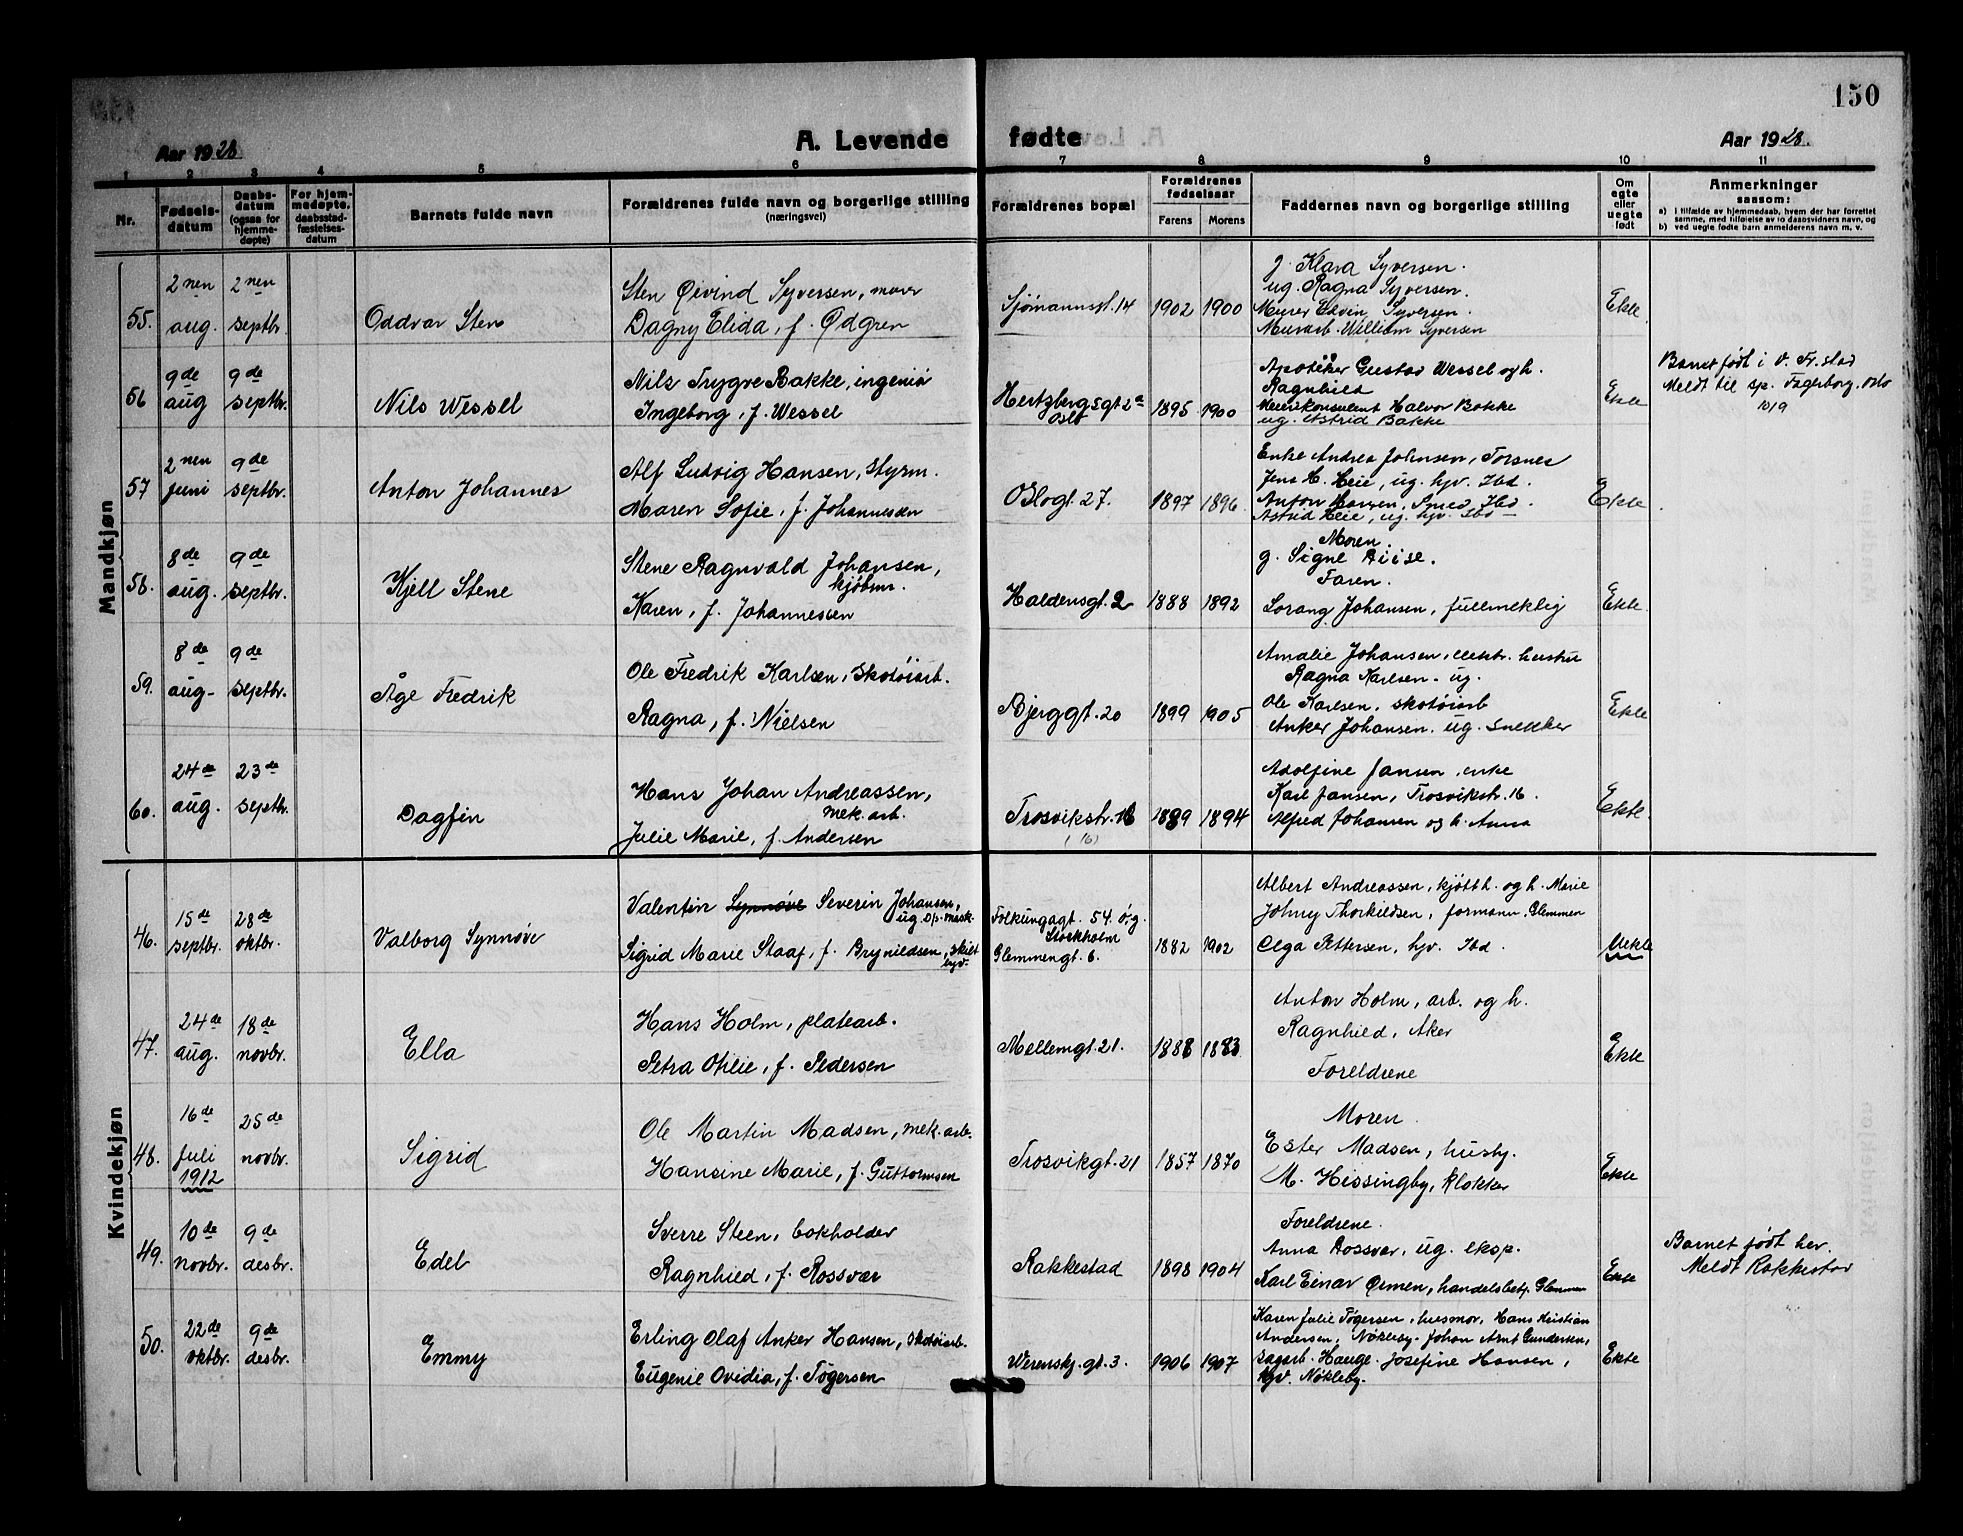 150
Aar 1928.
A. Levende fødte
Aar 1928.
1 2 3 4 5 6 7 8 9 10 11
Nr.
Fødsels-
datum
Daabs-
datum
(ogsaa for
hjemme-
døpte)
For hjem-
medøpte,
daabsstad-
fæstelses-
datum
Barnets fulde navn
Forældrenes fulde navn og borgerlige stilling
(næringsvei)
Forældrenes bopæl
Forældrenes
fødselsaar
Farens Morens
Faddernes navn og borgerlig stilling
Om
egte
eller
uegte
født
Anmerkninger
saasom:
a) i tilfælde av hjemmedaab, hvem der har forrettet
samme, med tilføielse av to daabsvidners navn, og
b) ved uegte fødte barn anmelderens navn m. v.
Mandkjøn
55.
2nen
aug.
2nen
septbr.
Oddvar Sten
Sten Øivind Syversen, murer
Dagny Elida, f. Ødgren
Sjømannsgt. 14
1902 1900
g. Klara Syversen.
ug. Ragna Syversen.
Murer Edvin Syversen.
Murarb. William Syversen
Ekte
56
9de
aug
9de
septbr.
Nils Wessel
Nils Trygve Bakke, ingeniør
Ingeborg, f. Wessel
Hertzbergsgt 2a
Oslo
1895 1900
Apotéker Gustav Wessel og h.
Ragnhild
Meierikonsulent Halvor Bakke
ug. Astrid Bakke
Ekte
Barnet født i V. Fr.stad
Meldt til sp. Fagerborg, Oslo
10/9
57
2nen
juni
9de
septbr.
Anton Johannes
Alf Ludvig Hansen, styrm.
Maren Sofie, f. Johannessen
Oslogt. 27.
1897 1896
Enke Andrea Johnsen, Torsnes
Jens H. Heie, ug. hjv. Ibd.
Anton Hansen, Smed, Ibd.
Astrid Heie, ug. hjv. Ibd
Ekte
58.
8de
aug.
9de
septbr.
Kjell Stene
Stene Ragnvald Johansen,
kjøbm.
Karen, f. Johannessen
Haldensgt. 2
1888 1892
Moren.
g. Signe Riise.
Faren.
Lorang Johansen, fullmektig
Ekte
59.
8de
aug-
9de
septbr.
Åge Fredrik
Ole Fredrik Karlsen, Skotøiarb.
Ragna, f. Nielsen
Bjerggt. 20
1899 1905
Amalie Johansen, hustru
Ragna Karlsen. ug.
Ole Karlsen. skotøiarb
Anker Johansen. ug. snekker
Ekte
60.
24de
aug.
23de
septbr.
Dagfin
Hans Johan Andreassen,
mek. arb.
Julie Marie, f. Andersen
Trosvikstr. 16
(16)
1889 1894
Adolfine Jansen, enke
Karl Jansen, Trosvikstr. 16.
Alfred Johansen og h. Anna
Ekte.
Kvindekjøn
46.
15de
septbr.
28de
oktbr.
Valborg Synnøve
Valentin Synnøve Severin Johansen,
ug. op. mask.
Sigrid Marie Staaf, f. Brynildsen, skilt
hjv.
Folkungagt. 54. ö.g.
Stockholm
Glemmengt. 6.
1882 1902
Albert Andreassen, kjøtth. og h. Marie
Johny Thorkildsen, formann. Glemmen
Olga Pettersen, hjv. Ibd.
Uekte
47.
24de
aug.
18de
novbr.
Ella
Hans Holm, platearb.
Petra Otilie, f. Pedersen
Mellemgt. 21.
1888 1883
Anton Holm, arb. og h.
Ragnhild, Aker
Foreldrene
Ekte
48.
16de
juli
1912
25de
novbr.
Sigrid
Ole Martin Madsen, mek. arb.
Hansine Marie, f. Guttormsen
Trosvikgt. 21
1857 1870
Moren.
Ester Madsen, husbg.
M. Hissingby, klokker
Ekte
49.
10de
novbr.
9de
desbr.
Edel
Sverre Steen, bokholder
Ragnhild, f. Rossvær
Rakkestad
1898 1904
Foreldrene.
Anna Rossvær, ug. eksp.
Karl Einar Ørmen, handelsbetj. Glemmen
Ekte
Barnet født her.
Meldt Rakkestad
50.
22de
oktbr.
9de
desbr.
Emmy
Erling Olaf Anker Hansen, skotøiarb.
Eugenie Ovidia, f. Tøgersen
Werenskj. gt. 3.
1906 1907
Karen Julie Tøgersen, husmor, Hans Kristian
Andersen, Nøkleby. Johan Arnt Gundersen,
sagarb. Hauge. Josefine Hansen,
hjv. Nøkleby.
Ekte